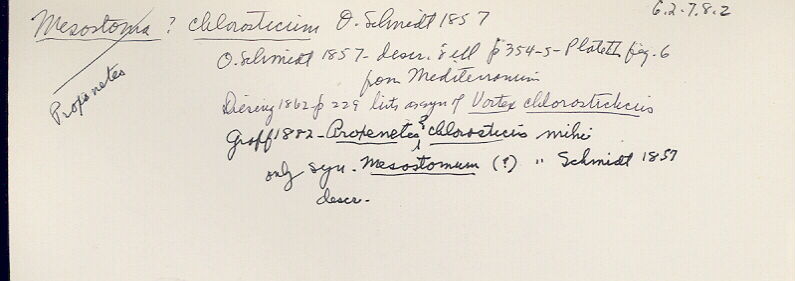 6.2.7.8.2
Mesostoma ? chlorosticium O. Schmidt 1857
Proxenetes
O. Schmidt 1857 - descr. & ill p 354-5 - Plate II, fig. 6
from Mediterranean
Diesing 1862 - p 229 lists as syn of Vortex chlorostictus
Graff 1882 - Proxenetes ? chlorosticus mihi
only syn. Mesostomum (?) " Schmidt 1857
descr.